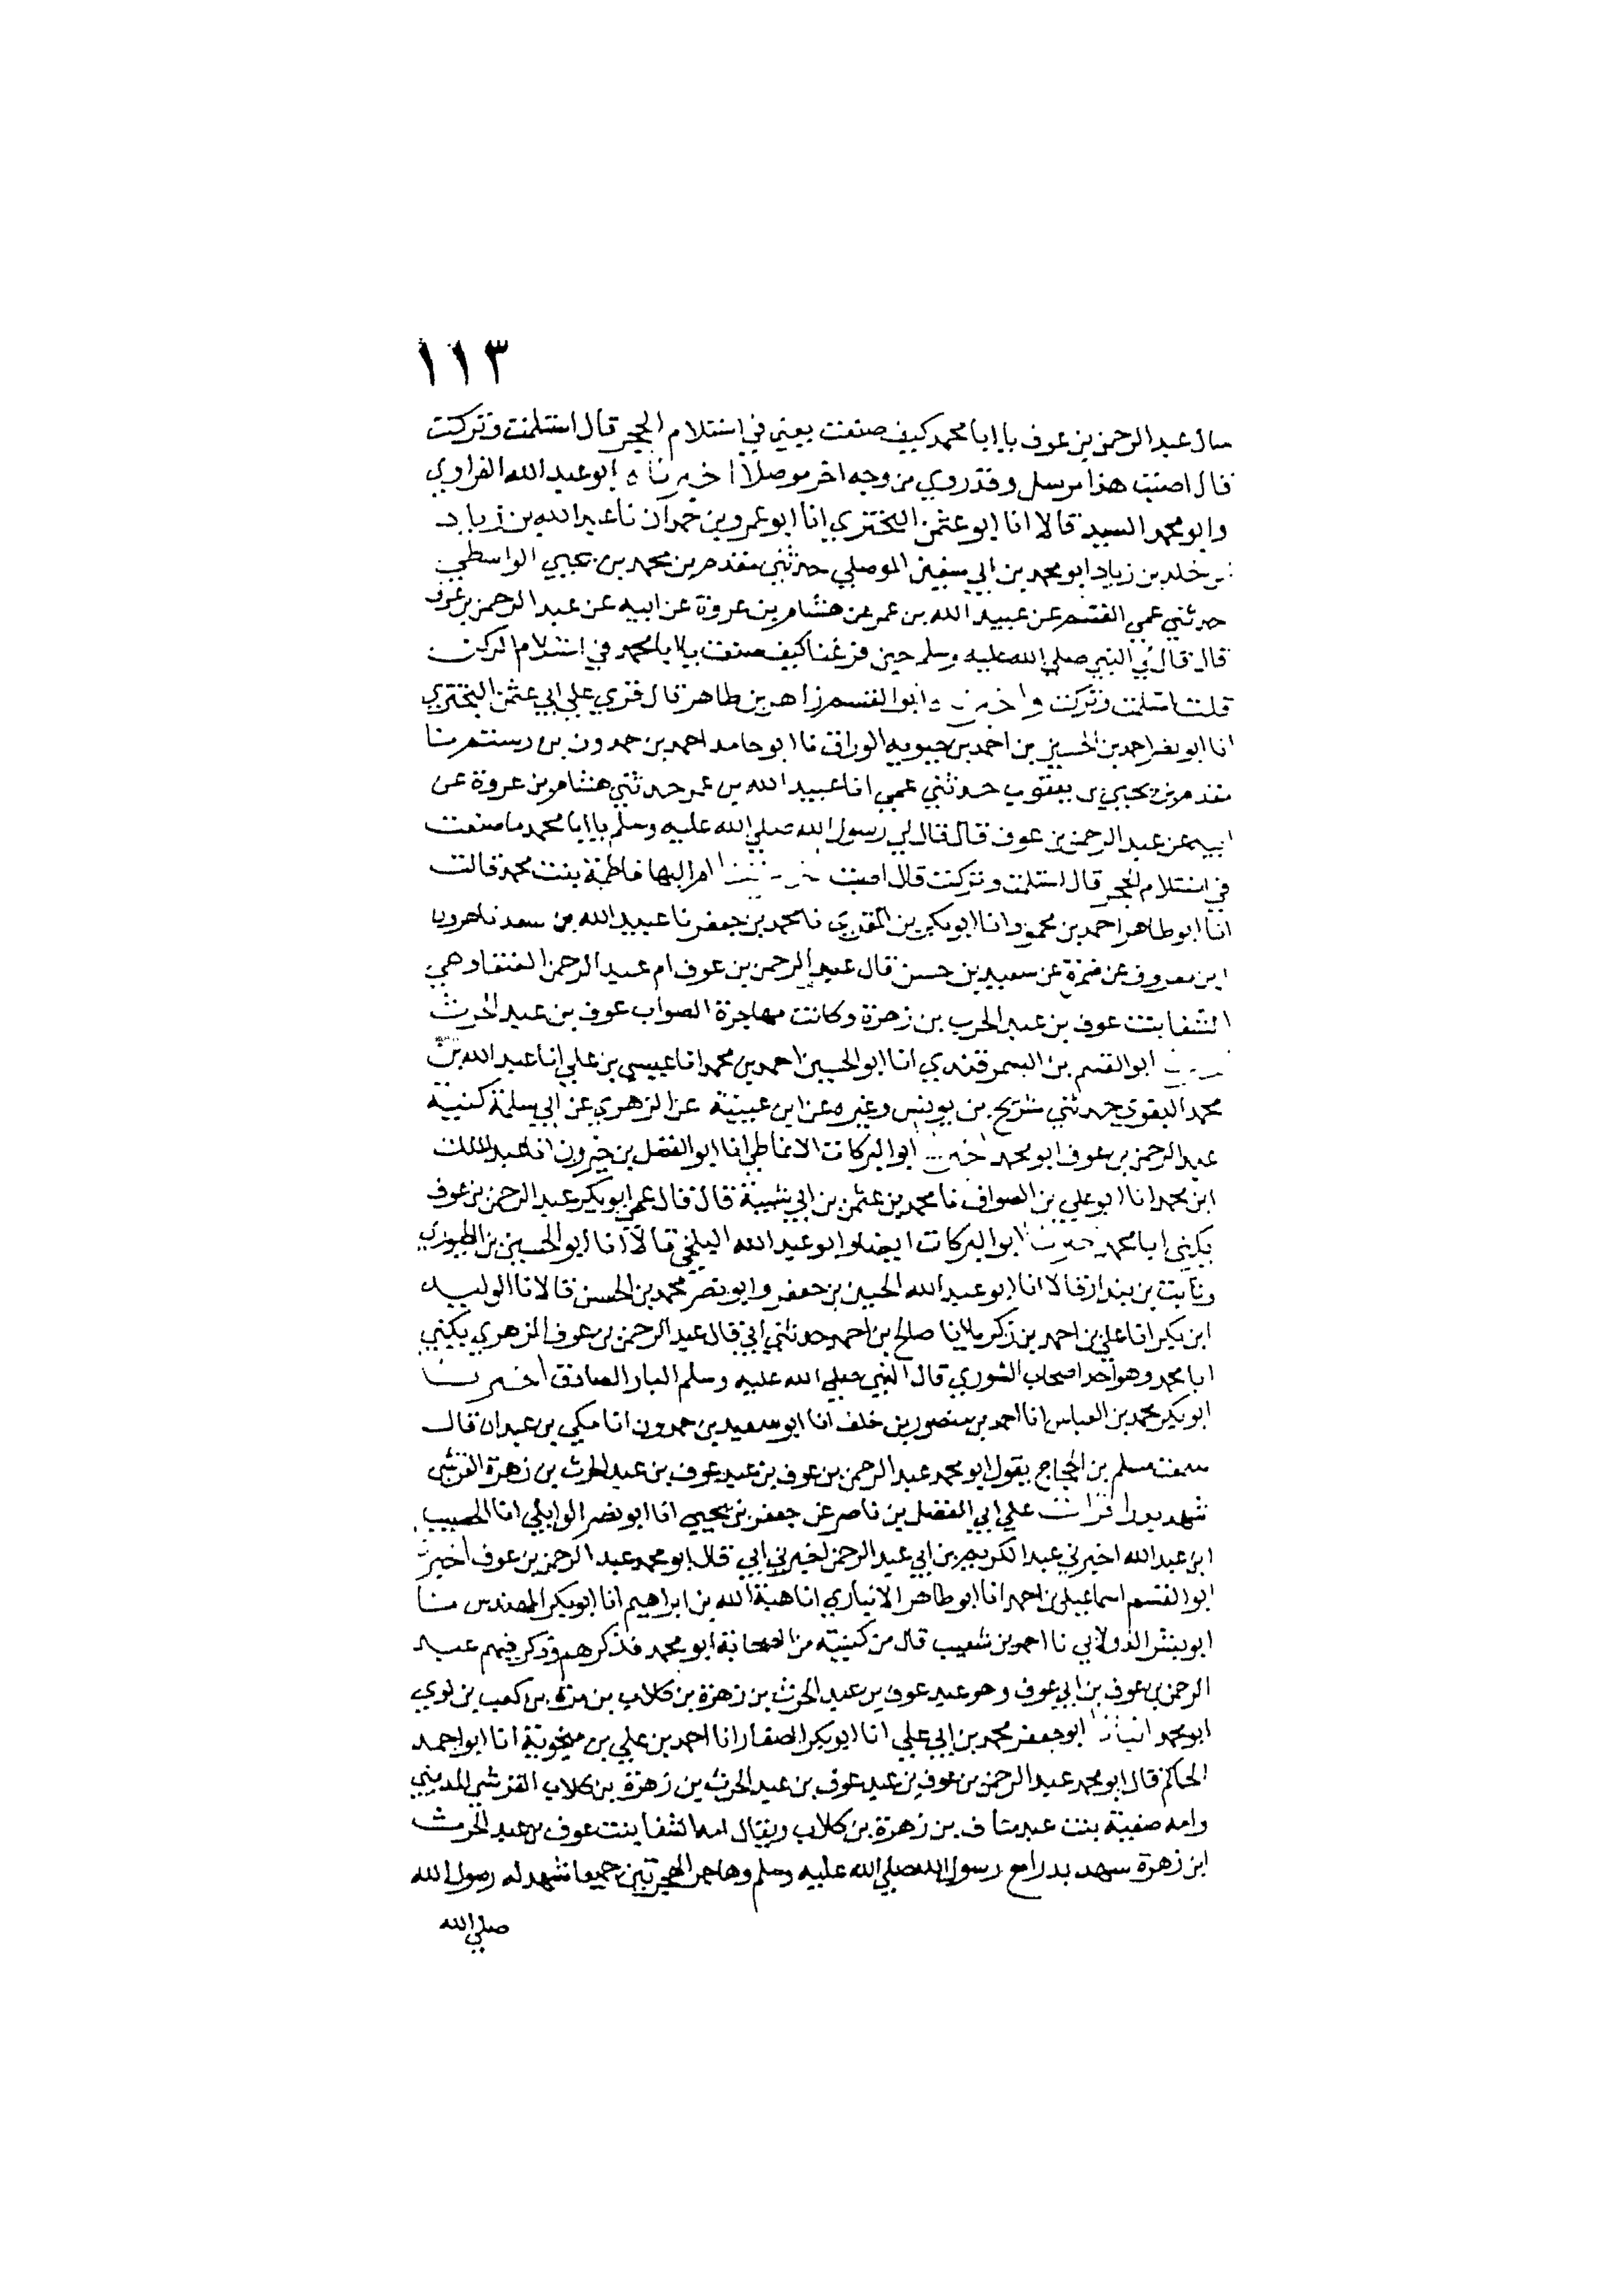 ١١٣
سال عبد الرحمن بن عوف يا ابا محمد كيف صنعت يعني في استلام الحجر قال استلمت وتركت
قال اصبت هذا مرسل وقد روي من وجه اخر موصلا اخبرناه ابو عبد الله الفراوي
وابو محمد السيد قالا انا ابو عثمن البختري انا ابو عمرو بن حمدان نا عبد الله بن زياد
بن خلد بن زياد ابو محمد بن ابي سفين الموصلي حدثني مقدم بن محمد بن يحيي الواسطي
حدثني عمي القسم عن عبيد الله بن عمر عن هشام بن عروة عن ابيه عن عبد الرحمن بن عوف
قال قال لي النبي صلي الله عليه وسلم حين فرغنا كيف صنعت يا ابا محمد في استلام الركن
قلت استلمت وتركت واخبرناه ابو القسم زاهر بن طاهر قال قري علي ابي عثمن البختري
انا ابو نصر احمد بن الحسين بن احمد بن حيويه الوراق نا ابو حامد احمد بن حمدون بن رستم نا
مقدم بن يحيي بن يعقوب حدثني عمي انا عبيد الله بن عمر حدثني هشام بن عروة عن
ابيه عن عبد الرحمن بن عوف قال قال لي رسول الله صلي الله عليه وسلم يا ابا محمد ما صنعت
في استلام الحجر قال استلمت وتركت قال اصبت اخبرتنا ام البها فاطمة بنت محمد قالت
انا ابو طاهر احمد بن محمود انا ابو بكر بن المقري نا محمد بن جعفر نا عبيد الله بن سعد نا هرون
ابن معروف عن ضمرة عن سعيد بن حسن قال عبد الرحمن بن عوف ام عبد الرحمن العنقا وهي
الشفا بنت عوف بن عبد الحرب بن زهرة وكانت مهاجرة الصواب عوف بن عبد الحرث
ابو القسم بن السمرقندي انا ابو الحسين احمد بن محمد انا عيسي بن علي انا عبد الله بن
محمد البغوي حدثني شريح بن يونس وغيره عن ابن عيينة عن الزهري عن ابي سلمة كنية
عبد الرحمن بن عوف ابو محمد اخبرنا ابو البركات الانماطي انا ابو الفضل بن خيرون انا عبد الملك
ابن محمد انا ابو علي بن الصواف نا محمد بن عثمن بن ابي شيبة قال قال عمي ابو بكر عبد الرحمن بن عوف
يكني ابا محمد اخبرنا ابو البركات ايضا وابو عبد الله البلخي قالا انا ابو الحسين بن الطيوري
وثابت بن بندار قالا انا ابو عبد الله الحسين بن جعفر وابو نصر محمد بن الحسن قالا نا الوليد
ابن بكر انا علي بن احمد بن زكريا انا صالح بن احمد حدثني ابي قال عبد الرحمن بن عوف الزهري يكني
ابا محمد وهو احد اصحاب الشوري قال النبي صلي الله عليه وسلم البار الصادق اخبرنا
ابو بكر محمد بن العباس انا احمد بن منصور بن خلف انا ابو سعيد بن حمدون انا مكي بن عبدان قال
سمعت مسلم بن الحجاج يقول ابو محمد عبد الرحمن بن عوف بن عبد عوف بن عبد الحرث بن زهرة القرشي
شهد بدرا قرات علي ابي الفضل بن ناصر عن جعفر بن يحيي انا ابو نصر الوايلي انا الخصيب
ابن عبد الله اخبرني عبد الكريم بن ابي عبد الرحمن اخبرني ابي قال ابو محمد عبد الرحمن بن عوف اخبرنا
ابو القسم اسماعيل بن احمد انا ابو طاهر الانباري انا هبة الله بن ابراهيم انا ابو بكر المهندس نا
ابو بشر الدولابي نا احمد بن شعيب قال من كنيته من الصحابة ابو محمد فذكرهم وذكر فيهم عبد
الرحمن بن عوف بن ابي عوف وهو عبد عوف بن عبد الحرث بن زهرة بن كلاب بن مرة بن كعب بن لوي
ابو محمد انبانا ابو جعفر محمد بن ابي علي انا ابو بكر الصفار انا احمد بن علي بن منجوية انا ابو احمد
الحاكم قال ابو محمد عبد الرحمن بن عوف بن عبد عوف بن عبد الحرث بن زهرة بن كلاب القرشي المديني
وامه صفية بنت عبد مناف بن زهرة بن كلاب ويقال امه الشفا بنت عوف بن عبد الحرث
ابن زهرة شهد بدرا مع رسول الله صلي الله عليه وسلم وهاجر الهجرتين جميعا شهد له رسول الله
صلي الله